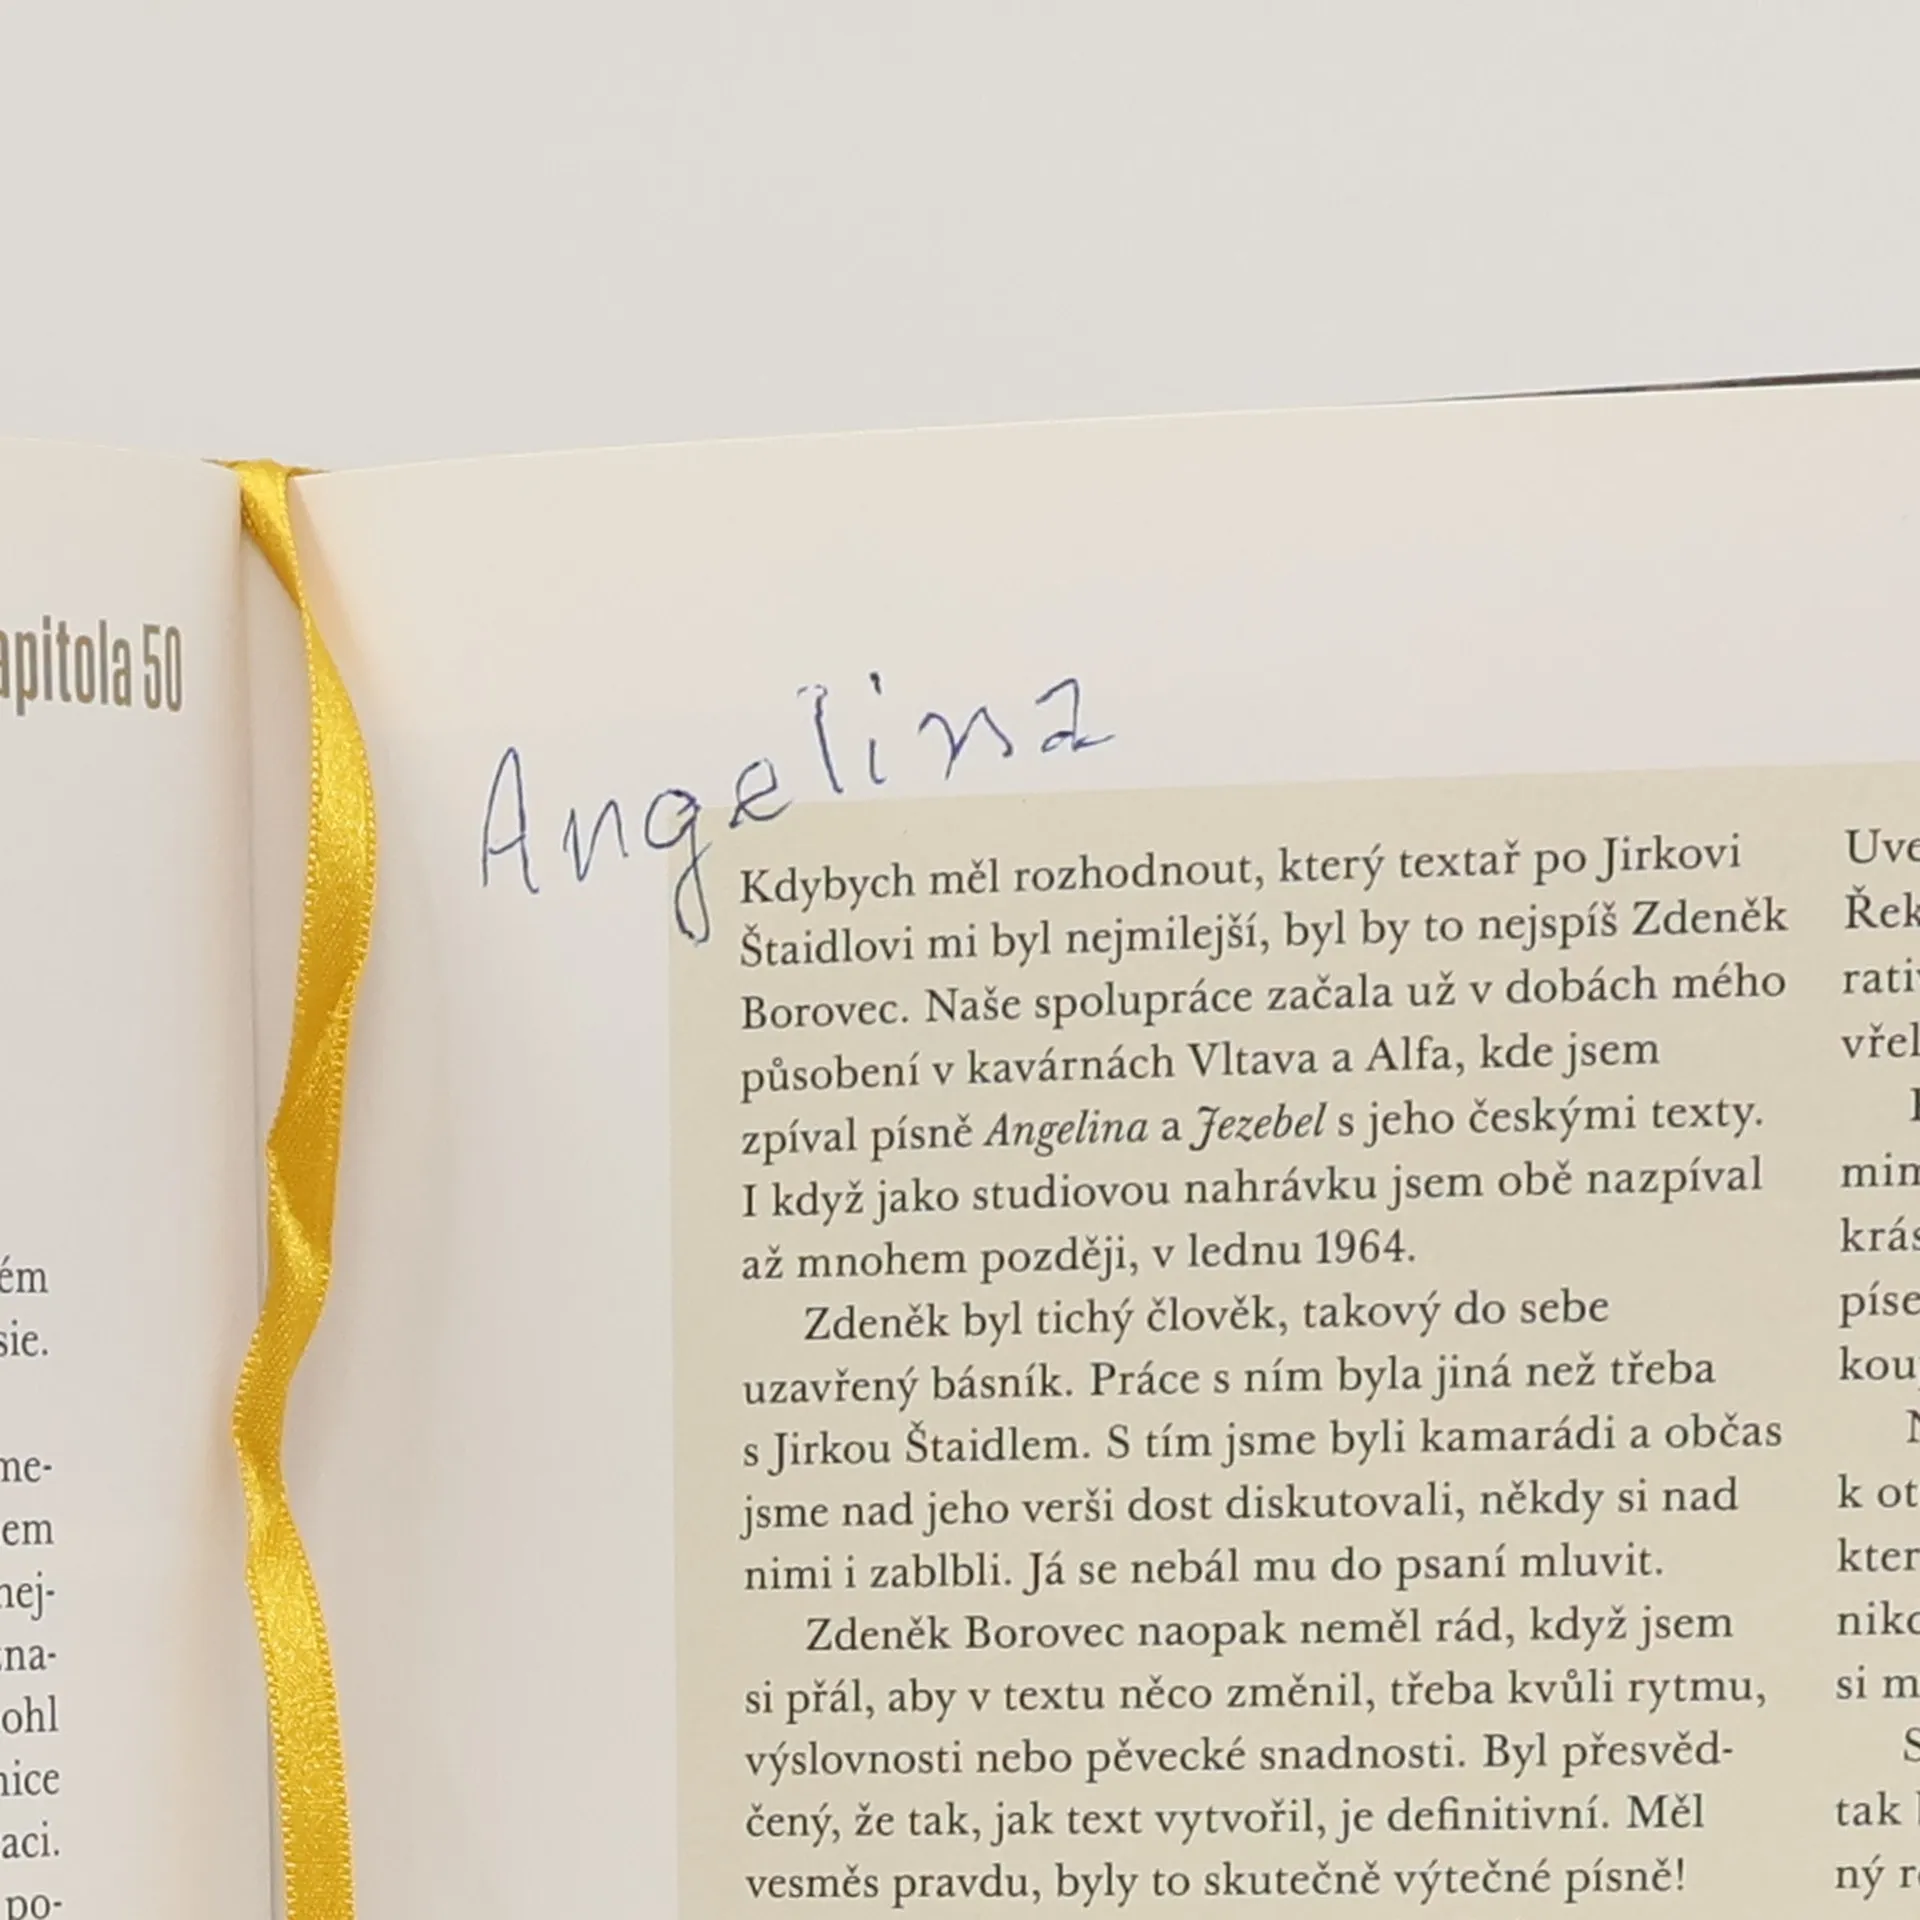 apitola 50
ém
sie.
me-
em
nej-
zna-
ohl
nice
aci.
po-
Angelina
Kdybych měl rozhodnout, který textař po Jirkovi
Štaidlovi mi byl nejmilejší, byl by to nejspíš Zdeněk
Borovec. Naše spolupráce začala už v dobách mého
působení v kavárnách Vltava a Alfa, kde jsem
zpíval písně Angelina a Jezebel s jeho českými texty.
I když jako studiovou nahrávku jsem obě nazpíval
až mnohem později, v lednu 1964.
Zdeněk byl tichý člověk, takový do sebe
uzavřený básník. Práce s ním byla jiná než třeba
s Jirkou Štaidlem. S tím jsme byli kamarádi a občas
jsme nad jeho verši dost diskutovali, někdy si nad
nimi i zablbli. Já se nebál mu do psaní mluvit.
Zdeněk Borovec naopak neměl rád, když jsem
si přál, aby v textu něco změnil, třeba kvůli rytmu,
výslovnosti nebo pěvecké snadnosti. Byl přesvěd-
čený, že tak, jak text vytvořil, je definitivní. Měl
vesměs pravdu, byly to skutečně výtečné písně!
Uve
Řek
rati
vřel
mim
krás
píse
kou
k ot
kter
niko
si m
S
tak
ný r